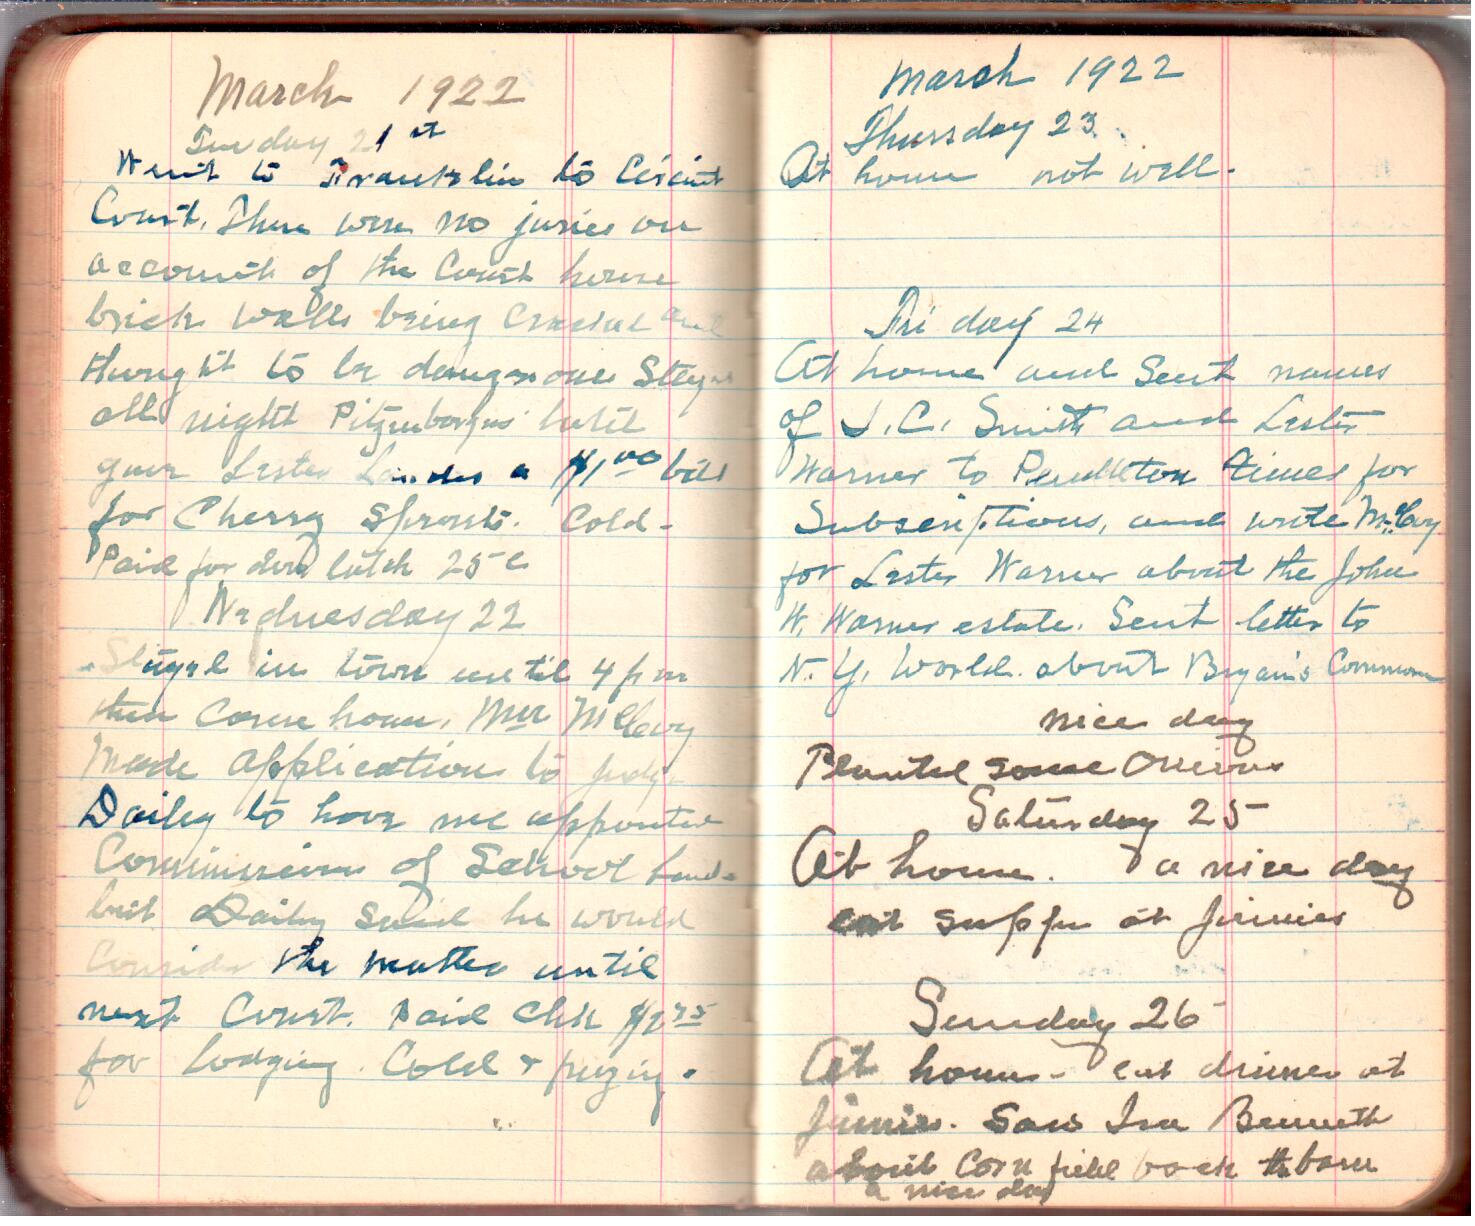 March 1922
Tuesday 21st
Went to Franklin to Circuit
Court. There were no juries on
account of the Court house
brick walls being cracked and
thought to be dangerous Stayed
all night Pitzenbarger hotel
gave Lester Landes a $1.00 bill
for Cherry Sprouts. Cold -
Paid for door latch 25c
Wednesday 22
Stayed in town until 4 pm
then Came home. Mr McCoy
Made application to Judge
Dailey to have me appointed
Commissioner of School lands
but Dailey said he would
Consider the matter until
next Court. Paid Chk
for lodging. Cold &
March 1922
Thursday 23.
At home not well.
Friday 24
At home and Sent names
of J. C. Smith and Lester
Warner to Pendleton times for
Subscriptions, and wrote McCoy
for Lester Warner about the John
W. Warner estate. Sent letter to
N. Y. World. about Bryan's Common
nice day
Planted some Onions
Saturday 25
At home. a nice day
eat supper at Jimmies
Sunday 26
At home - eat dinner at
Jimmies. Saw Ira Bennett
about Corn field back the barn
a nice day